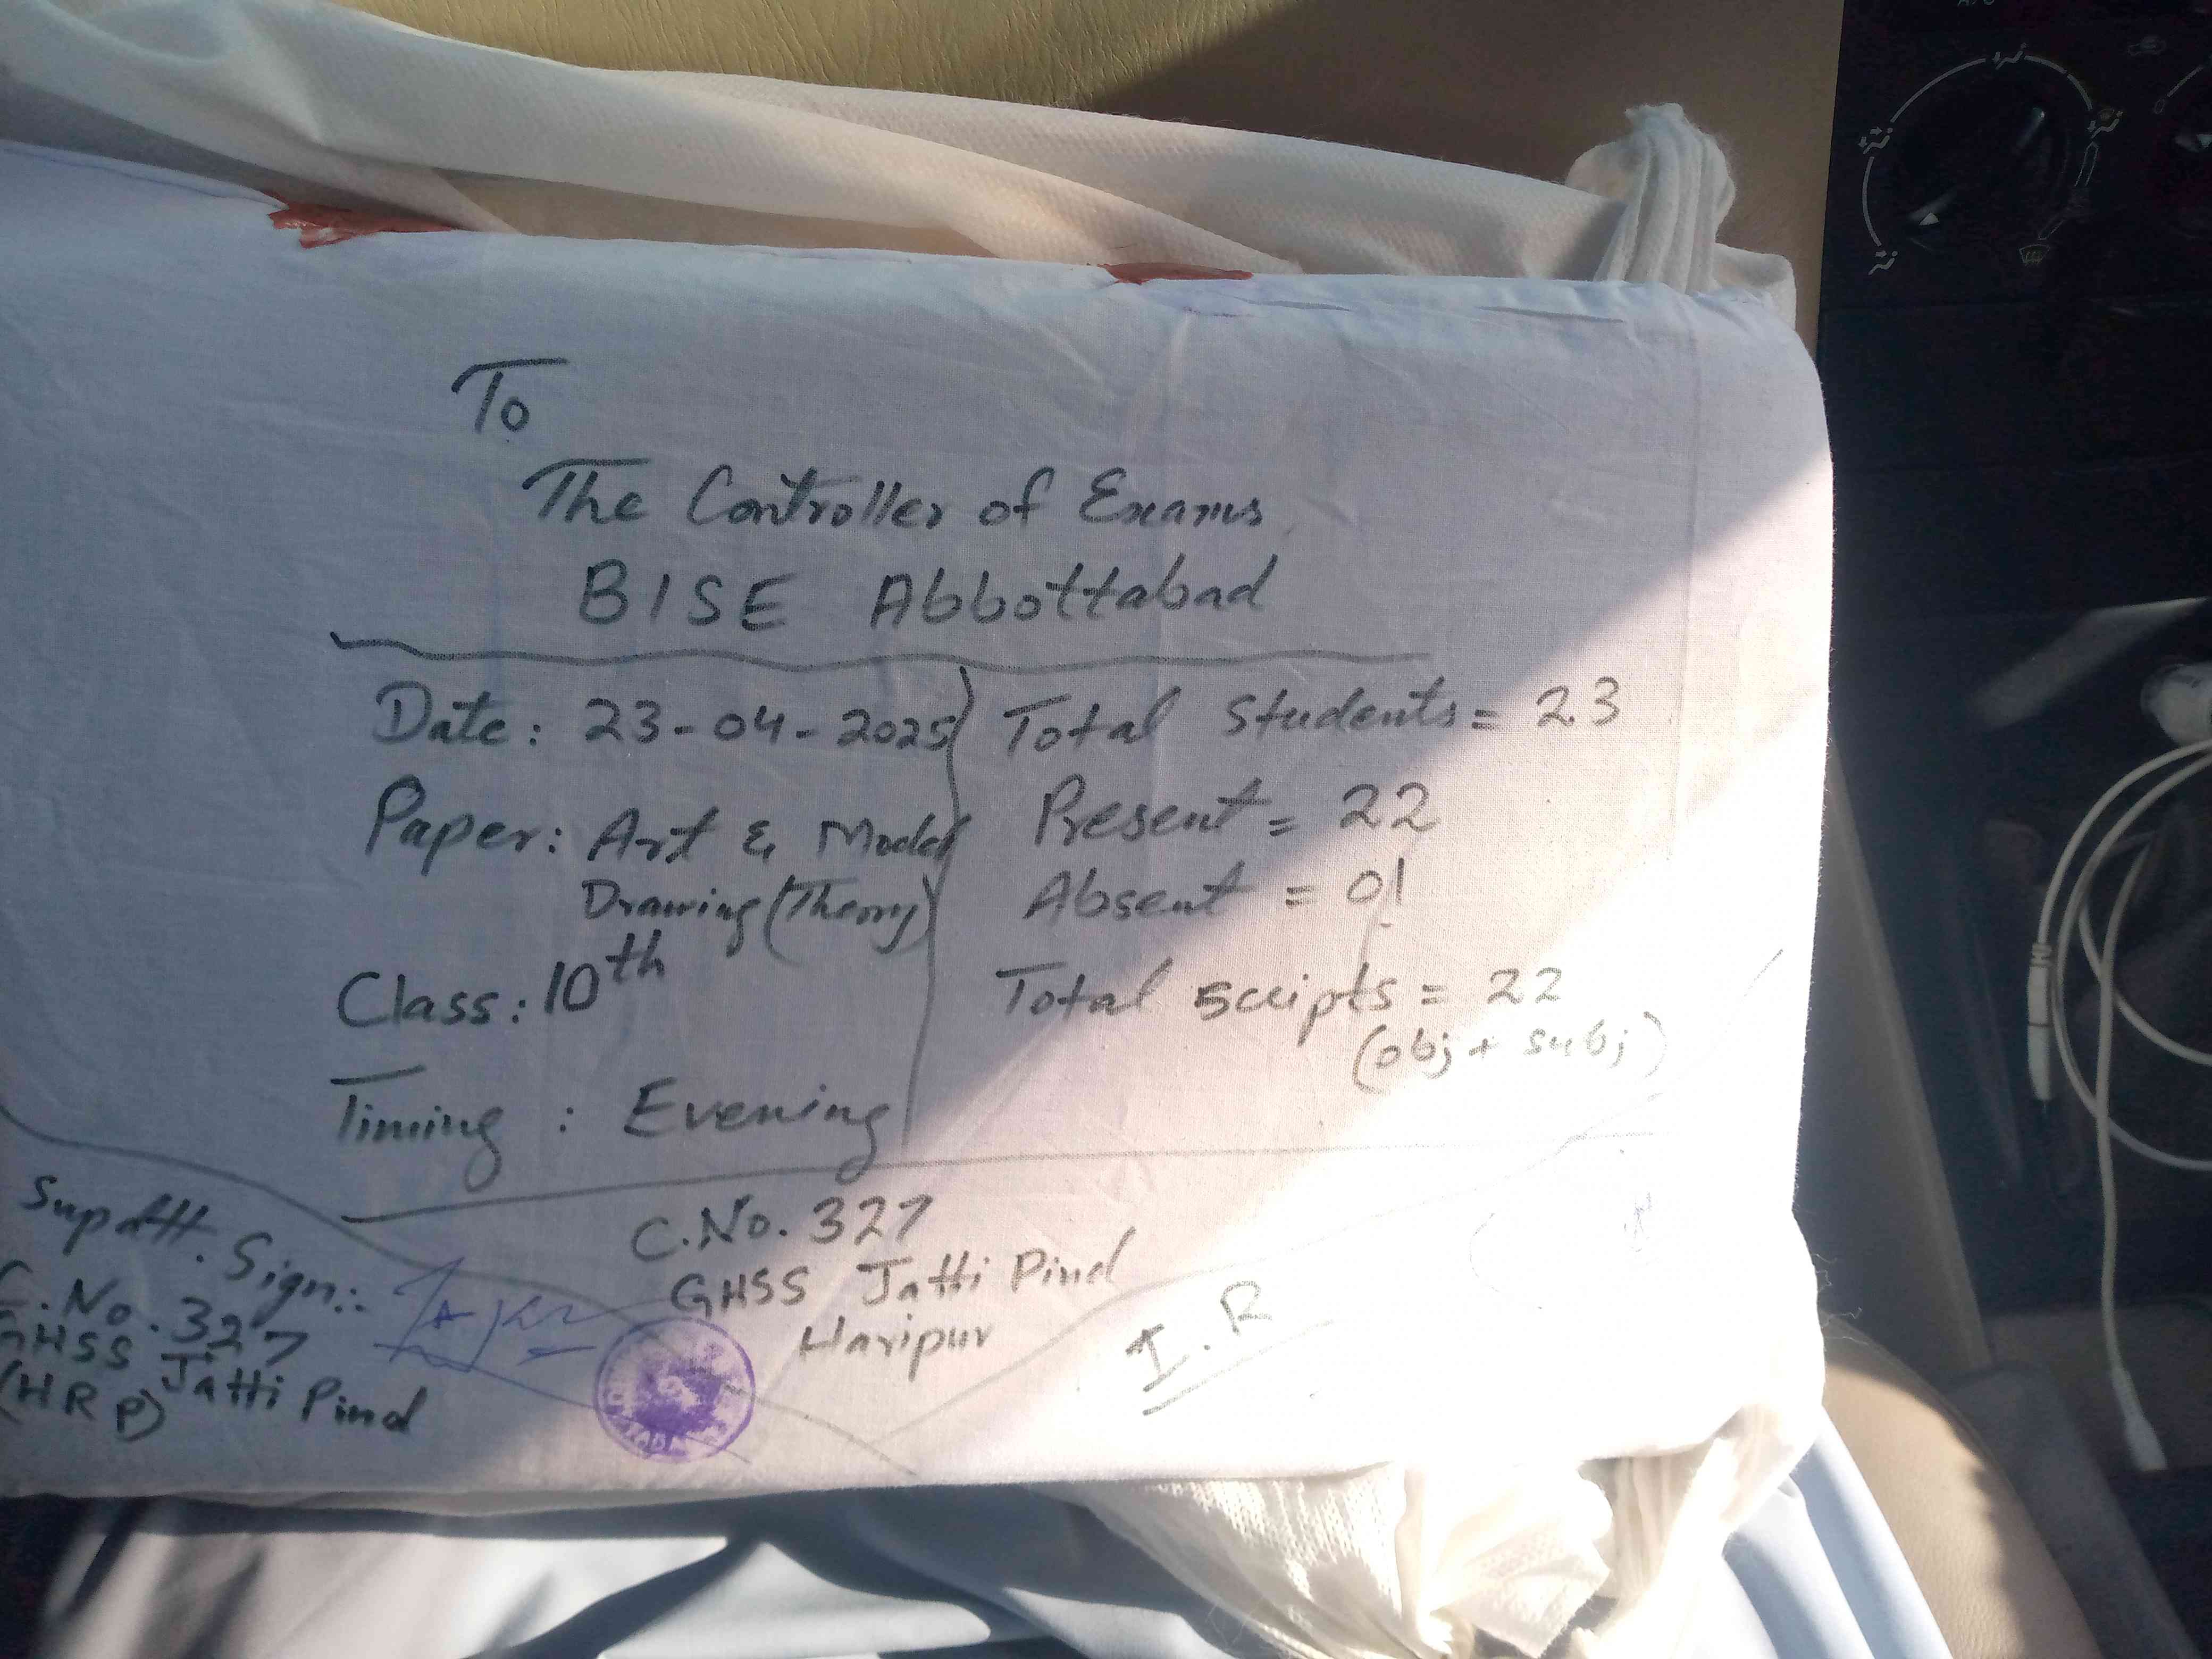 To
The Controller of Exams
BISE Abbottabad
Date: 23-04-2025
Paper: Art & Model
Drawing (Theory)
Class: 10th
Timing : Evening
Total Students = 23
Present = 22
Absent = 01
Total Scripts = 22
(obj + subj)
Supdtt. Sign:
C.No. 327
GHSS Jatti Pind
(HRP)
C.No. 327
GHSS Jatti Pind
Haripur
I.R